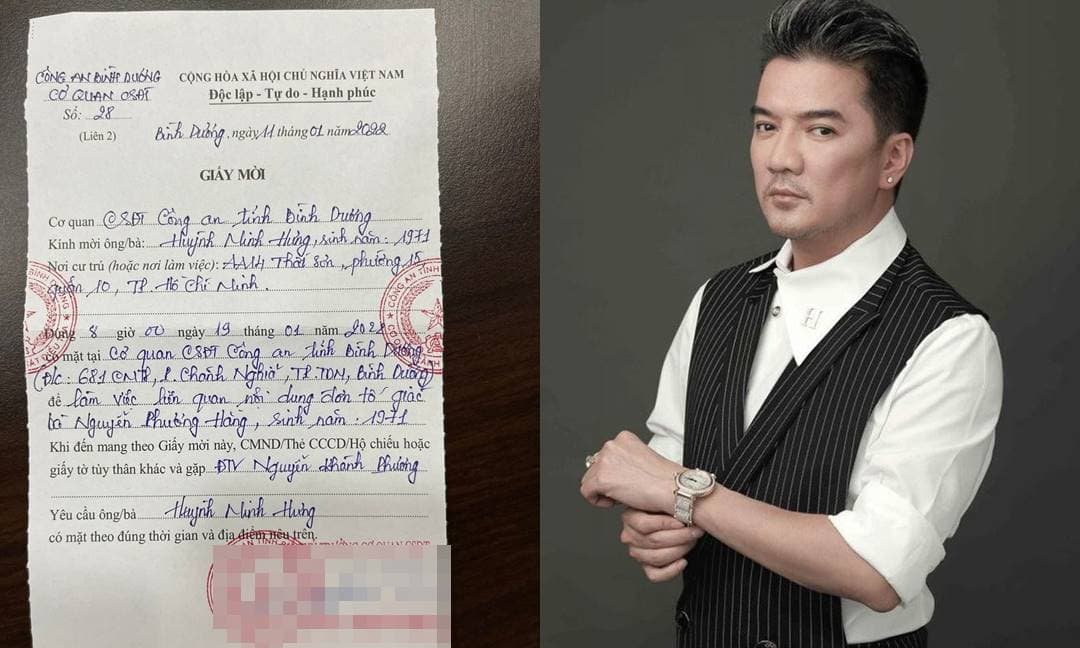 CÔNG AN BÌNH DƯƠNG
CƠ QUAN CSĐT
Số: 28
(Liên 2)
CỘNG HÒA XÃ HỘI CHỦ NGHĨA VIỆT NAM
Độc lập - Tự do - Hạnh phúc
Bình Dương, ngày 11 tháng 01 năm 2022
GIẤY MỜI
Cơ quan CSĐT Công an tỉnh Bình Dương
Kính mời ông/bà: Huỳnh Minh Hưng, sinh năm: 1971
Nơi cư trú (hoặc nơi làm việc): AA14 Thất Sơn, phường 15
quận 10, TP. Hồ Chí Minh.
Đúng 8 giờ 00 ngày 19 tháng 01 năm 2022
có mặt tại Cơ quan CSĐT Công an tỉnh Bình Dương
(Đ/c: 681 CMT8, P. Chánh Nghĩa, TP. TDM, Bình Dương)
để làm việc liên quan nội dung đơn tố giác
bà Nguyễn Phương Hằng, sinh năm: 1971
Khi đến mang theo Giấy mời này, CMND/Thẻ CCCD/Hộ chiếu hoặc
giấy tờ tùy thân khác và gặp ĐTV Nguyễn Khánh Phương
Yêu cầu ông/bà Huỳnh Minh Hưng
có mặt theo đúng thời gian và địa điểm nêu trên.